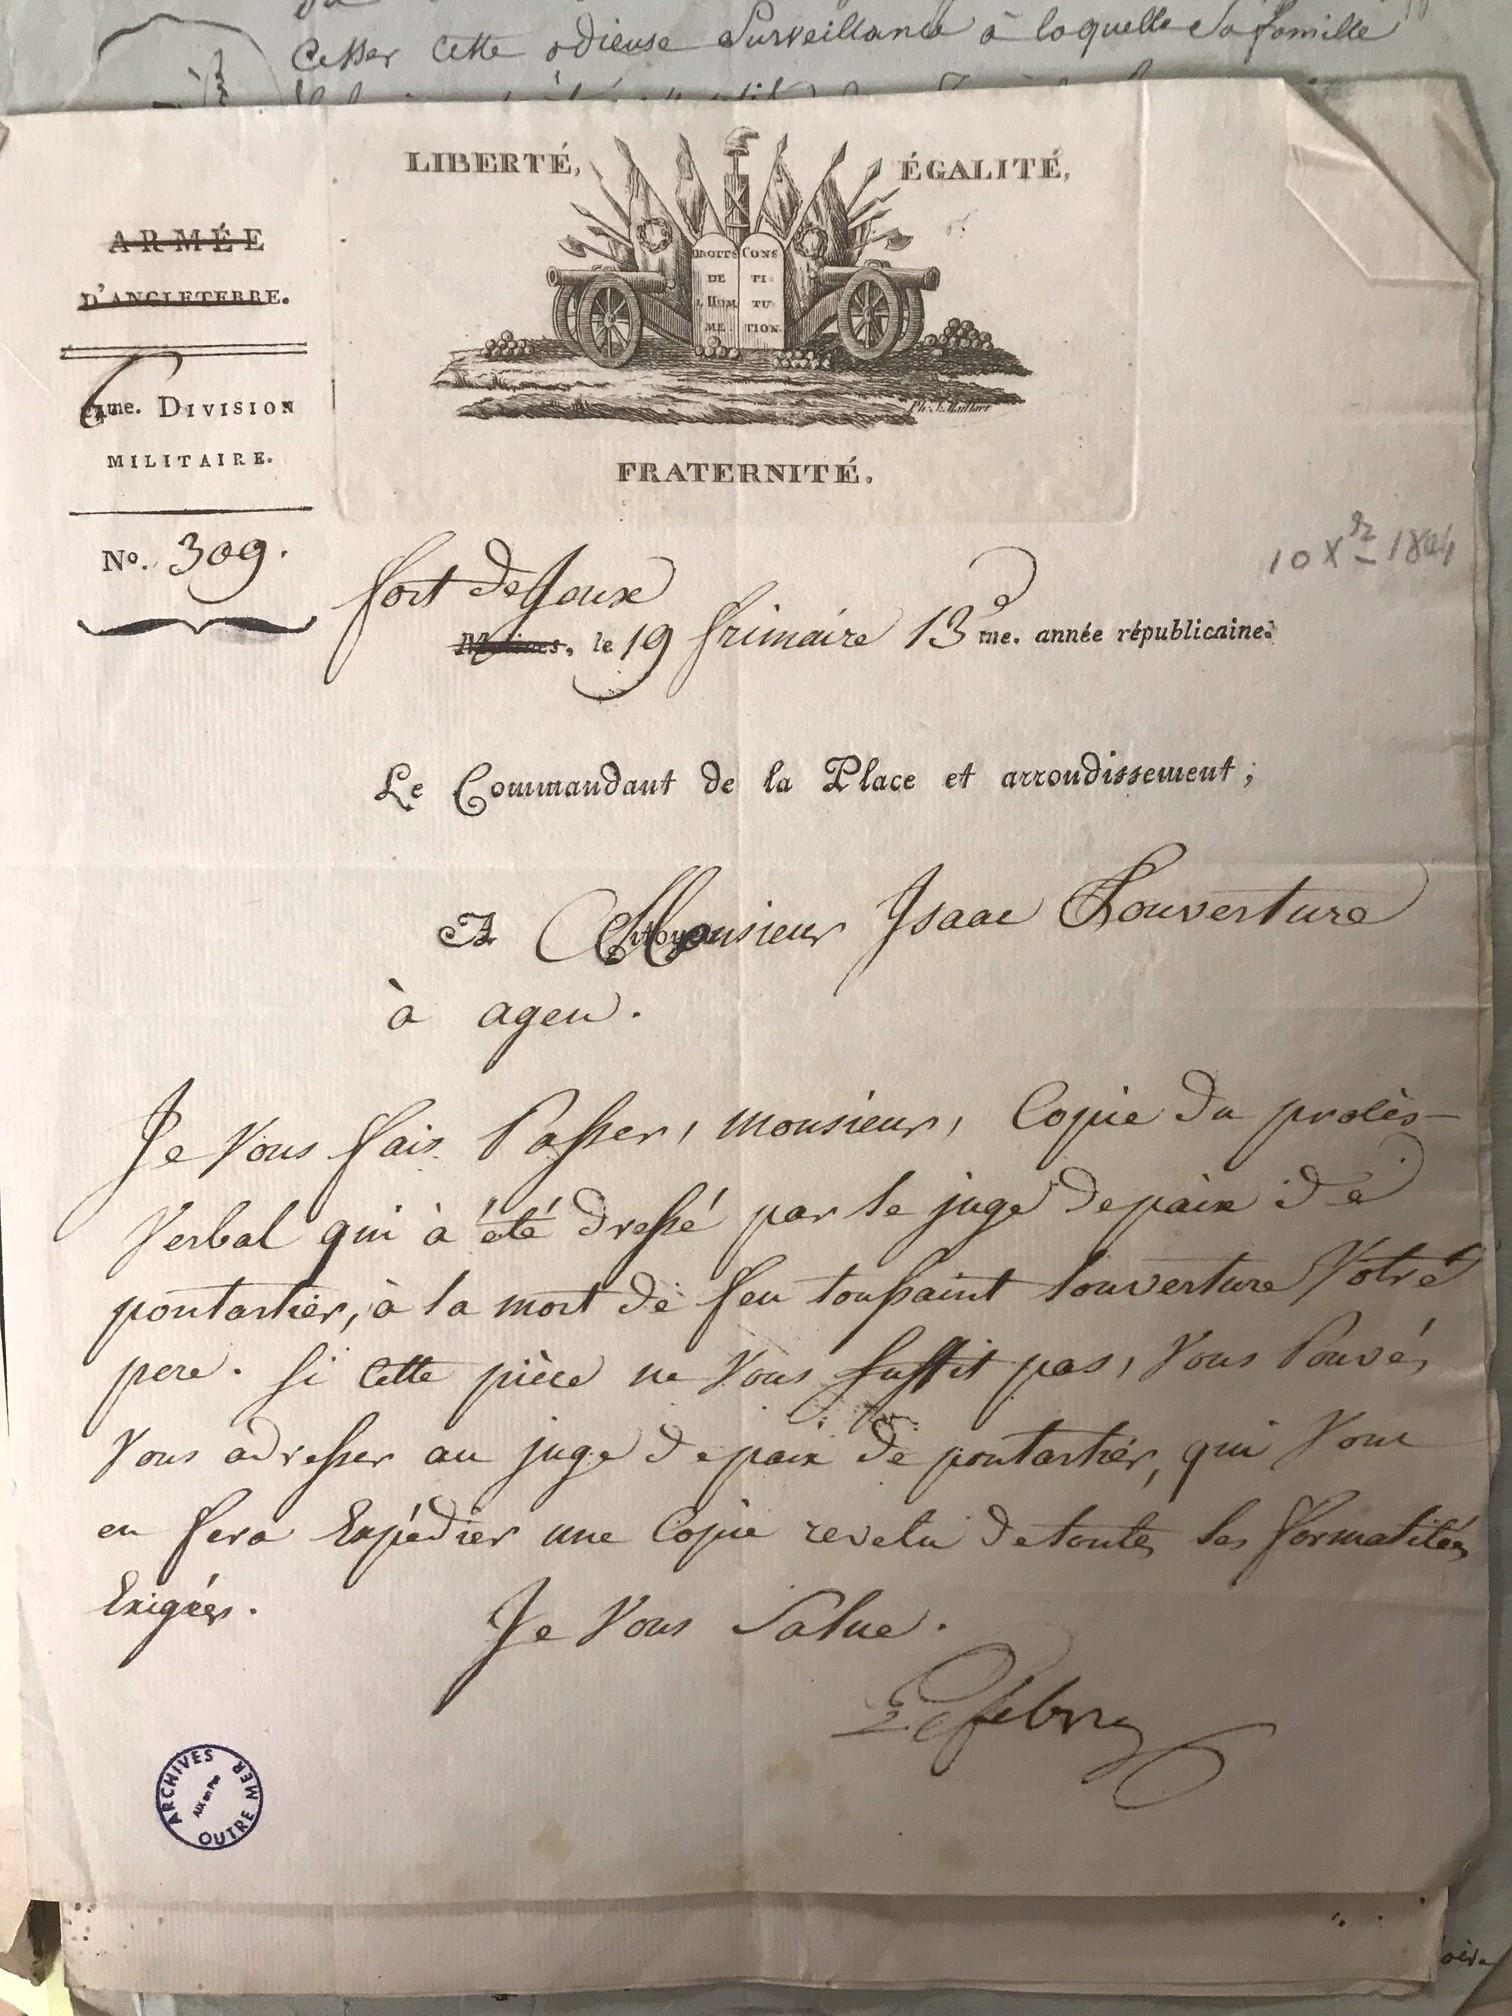 Cesser cette odieuse Surveillance à laquelle sa famille
LIBERTÉ, ÉGALITÉ,
DROITS DE L'HOMME
CONSTITUTION.
FRATERNITÉ.
ARMÉE
D'ANGLETERRE.
6me. DIVISION
MILITAIRE.
No. 309.
10 Xbre 1804
fort de Joux
Malines, le 19 frimaire 13me. année républicaine.
Le Commandant de la Place et arrondissement,
A Monsieur Isaac Louverture
à agen.
Je Vous fais Passer, monsieur, Copie du procès-
Verbal qui à été dressé par le juge depaix de
pontarlier, à la mort de feu toussaint louverture Votre
pere. Si cette pièce ne Vous suffit pas, Vous Pouvés
Vous adresser au juge depaix de pontarlier, qui Vous
en fera Expédier une Copie revetu detoutes les formalités
Exigées.
Je Vous Salue.
Lefebvre
ARCHIVES OUTRE MER
AIX en Pce